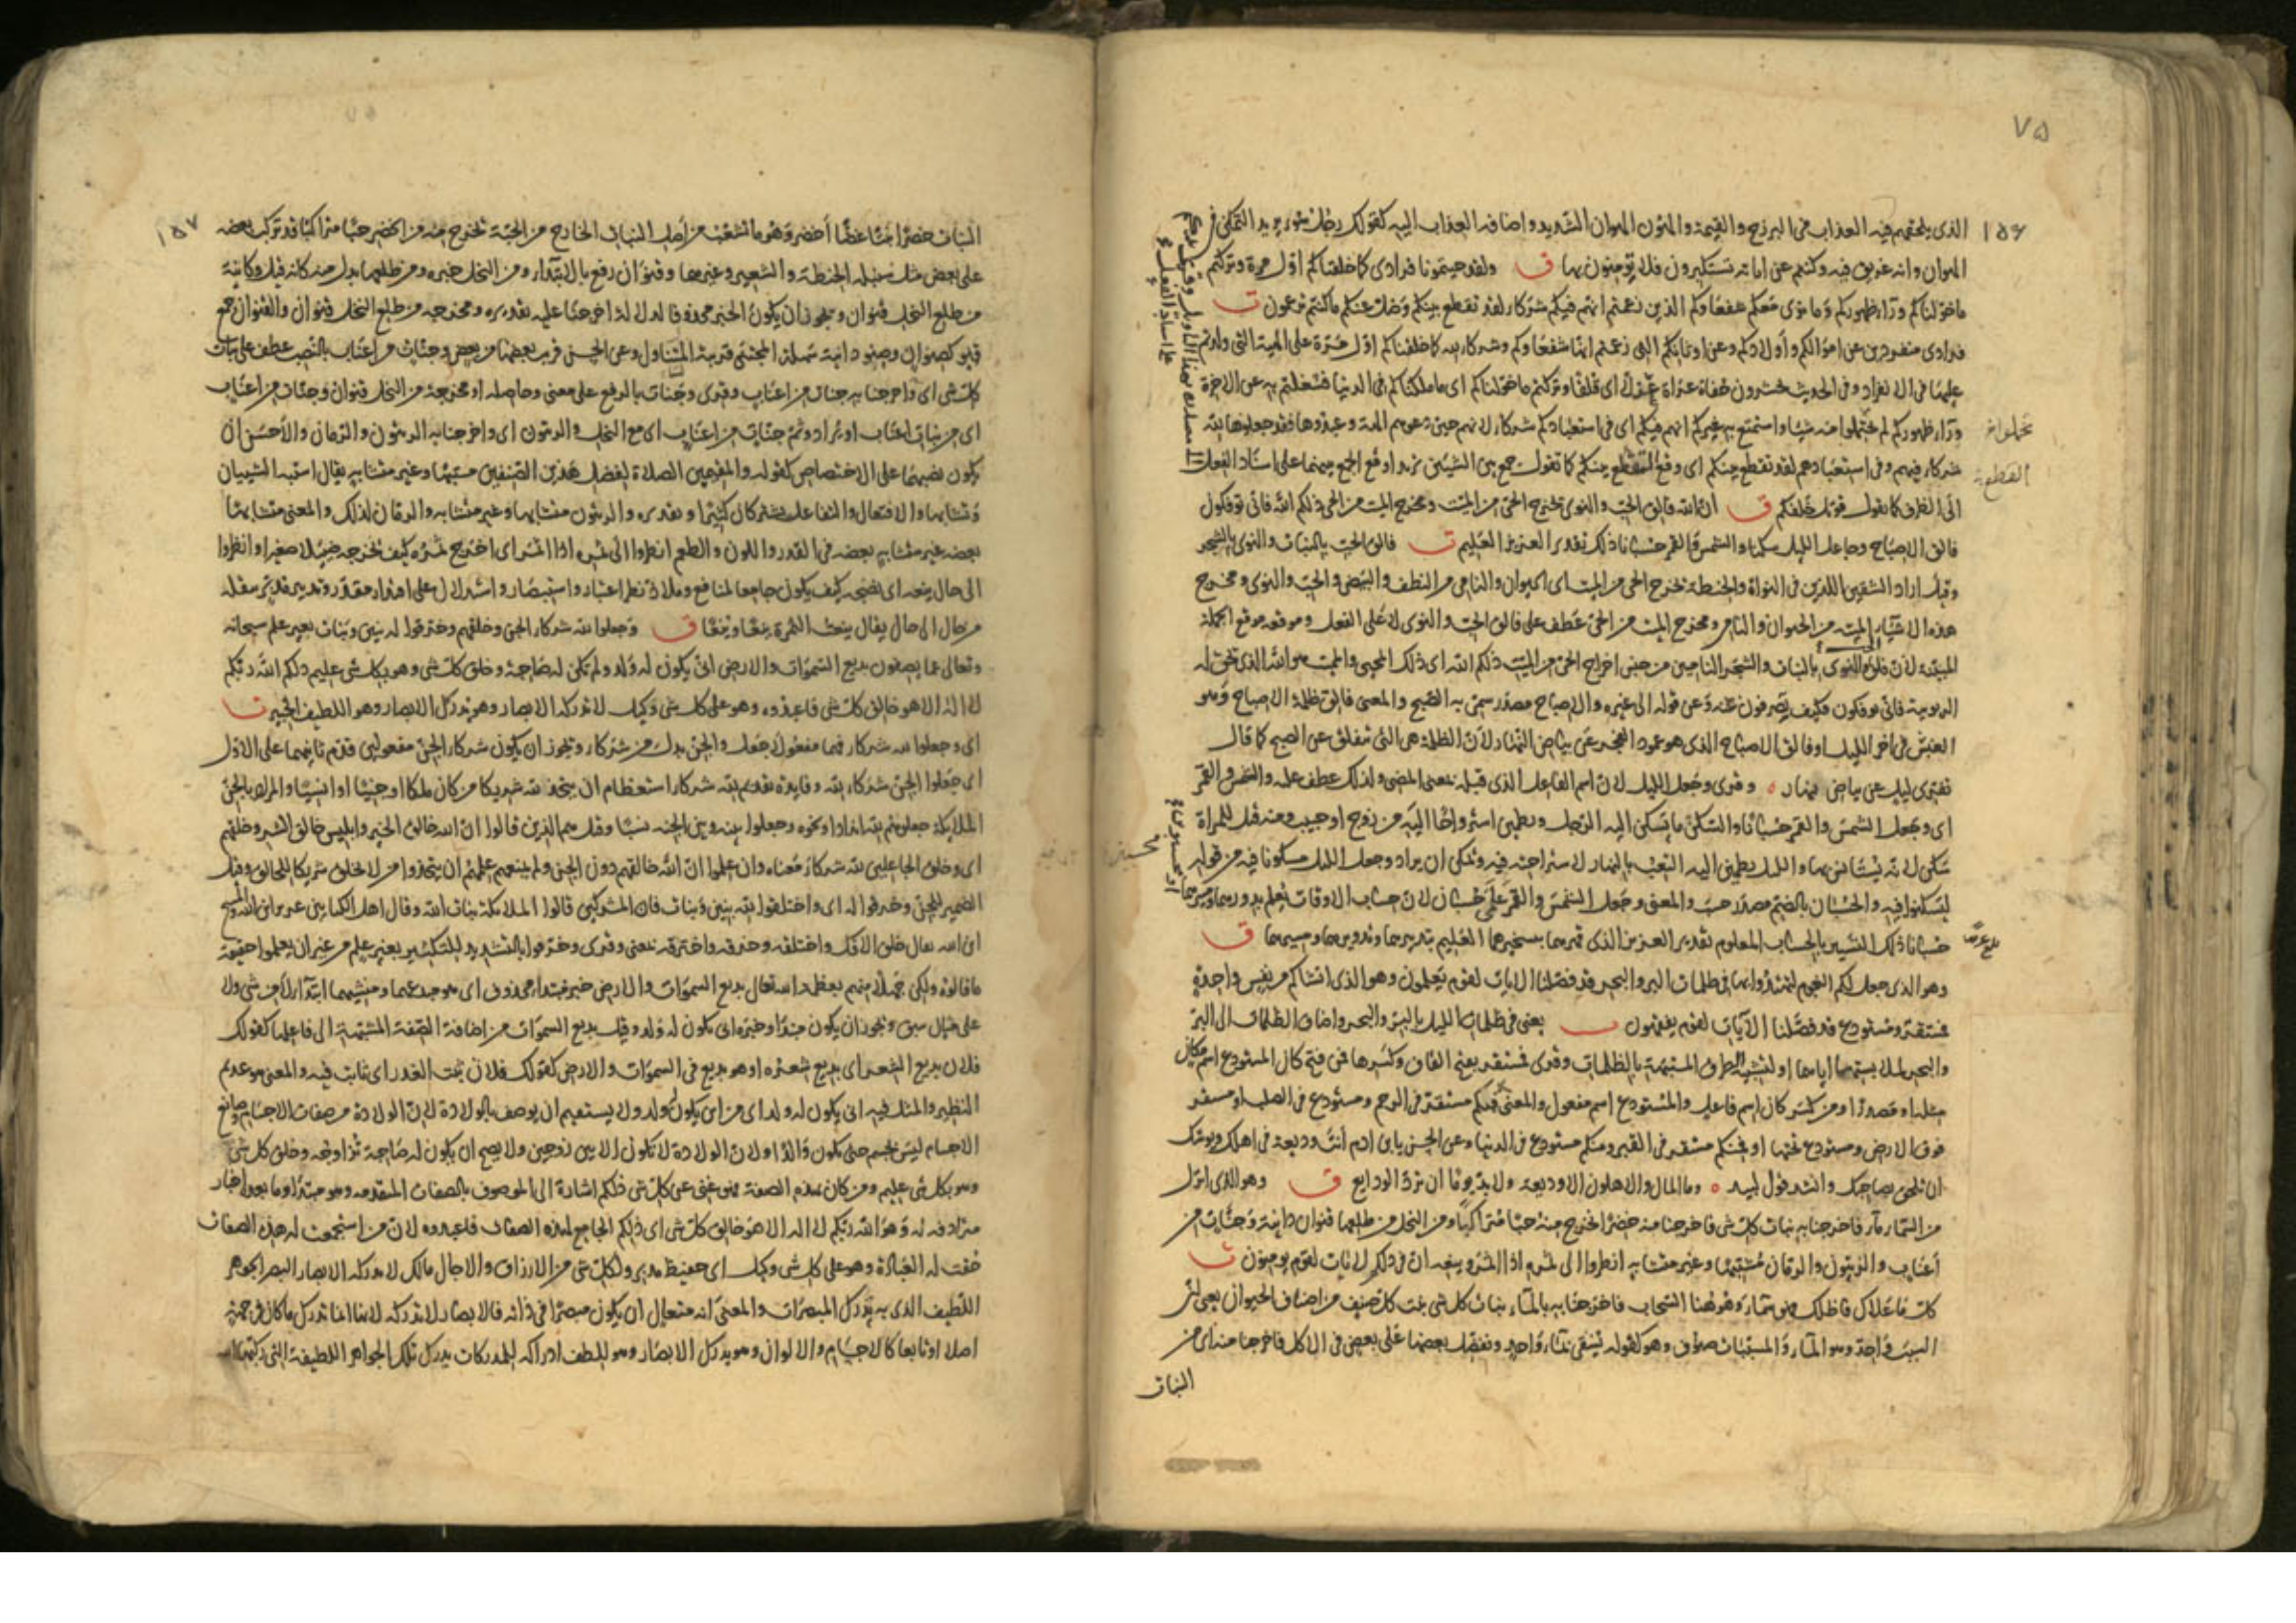 ٧٥
١٥٦
الذى يلحقهم فيه العذاب فى البرزخ والقيمة والهون الهوان الشديد واضافه العذاب اليه كقولك رجل سوء يريد التمكن فى
الهوان وانه عريق فيه وكنتم عن اياته تستكبرون فلا تؤمنون بها ق ولقد جيتمونا فرادى كما خلقناكم اول مرة وتركتم
ماخولناكم ورآء ظهوركم وما نرى معكم شفعاءكم الذين زعمتم انهم فيكم شركاء لقد تقطع بينكم وضل عنكم ماكنتم تزعمون ت
فرادى منفردين عن اموالكم واولادكم وعن اوثانكم التى زعمتم انها شفعاؤكم وشركاء لله كما خلقناكم اول مرة على الهيئة التى ولدتم
عليها فى الانفراد وفى الحديث تحشرون حفاة عراة غرلا اى قلفا وتركتم ماخولناكم اى ما ملكناكم فى الدنيا فشغلتم به عن الاخرة
ورآء ظهوركم لم تحتملوا منه شيئا واستمتع به غيركم انهم فيكم اى فى استعبادكم شركاء لانهم حين دعوهم الهة وعبدوها فقد جعلوها لله
شركاء فيهم وفى استعبادهم لقد تقطع بينكم اى وقع التقطع بينكم كما تقول جمع بين الشيئين تريد اوقع الجمع بينهما على اسناد الفعل
الى الظرف كما تقول قوتل خلفكم ق ان الله فالق الحب والنوى يخرج الحى من الميت ومخرج الميت من الحى ذلكم الله فانى توفكون
فالق الاصباح وجاعل الليل سكنا والشمس والقمر حسبانا ذلك تقدير العزيز العليم ت فالق الحب بالنبات والنوى بالشجر
وقيل اراد الشقين اللذين فى النواة والحنطة يخرج الحى من الميت اى الحيوان والنامى من النطف والبيض والحب والنوى ومخرج
هذه الاشياء الميتة من الحيوان والنامى ومخرج الميت من الحى عطف على فالق الحب والنوى لا على الفعل وموقعه موقع الجملة
المبينة لان فلق الحب والنوى بالنبات والشجر الناميين من جنس اخراج الحى من الميت ذلكم الله اى ذلك المحيى والمميت هو الله الذى تحق له
الربوبية فانى توفكون فكيف تصرفون عنه وعن قوله الى غيره والاصباح مصدر سمى به الصبح والمعنى فالق ظلمة الاصباح وهو
الغبش فى اخر الليل او فالق الاصباح الذى هو عمود الفجر عن بياض النهار لان الظلمة هى التى تنفلق عن الصبح كما قال
تفرى ليل عن بياض نهار ٥ وقرى وجعل الليل لان اسم الفاعل الذى قبله بمعنى المضى ولذلك عطف عليه والشمس والقمر
اى وجعل الشمس والقمر حسبانا والسكن ما يسكن اليه الرجل ويطمئن استرواحا اليه من زوج او حبيب ومنه قيل للمراة
سكن لانه يستانس بها والليل يطمئن اليه التعب بالنهار لاستراحته فيه ويمكن ان يراد وجعل الليل مسكونا فيه من قوله
ليسكنوا فيه والحسبان بالضم مصدر حسب والمعنى وجعل الشمس والقمر على حسبان لان حساب الاوقات يعلم بدورهما وسيرهما
حسبانا ذلك التسيير بالحساب المعلوم تقدير العزيز الذى قهرهما بتسخيرهما العليم بتدبيرهما وتدويرهما وتسييرهما ق
وهو الذى جعل لكم النجوم لتهتدوا بها فى ظلمات البر والبحر قد فصلنا الايات لقوم يعلمون وهو الذى انشاكم من نفس واحدة
فمستقر ومستودع قد فصلنا الآيات لقوم يفقهون ت يعنى فى ظلمات الليل بالبر والبحر واضاف الظلمات الى البر
والبحر لملابستهما اياهما او لتشبيه الطرق المشتبهة بالظلمات وقرى فمستقر بفتح القاف وكسرها فمن فتح كان المستودع اسم مكان
مثله او مصدرا ومن كسر كان اسم فاعل والمستودع اسم مفعول والمعنى فلكم مستقر فى الرحم ومستودع فى الصلب او مستقر
فوق الارض ومستودع تحتها او فمنكم مستقر فى القبر ومنكم مستودع فى الدنيا وعن الحسن يابن ادم انت وديعة فى اهلك ويوشك
ان تلحق بصاحبك وانشد قول لبيد ٥ وما المال والاهلون الا وديعة ولا بد يوما ان ترد الودايع ق وهو الذى انزل
من السماء ماء فاخرجنا به نبات كل شى فاخرجنا منه خضرا نخرج منه حبا متراكبا ومن النخل من طلعها قنوان دانية وجنات من
أعناب والزيتون والرمان مشتبها وغير متشابه انظروا الى ثمره اذا اثمر وينعه ان فى ذلكم لايات لقوم يومنون ت
كل ما علاك فاظلك فهو سماء وهو ههنا السحاب فاخرجنا به بالماء نبات كل شى نبت كل صنف من اصناف الحيوان يعنى ان
السبب واحد وهو الماء والمسببات صنوف وهو كقوله تسقى بماء واحد ونفضل بعضها على بعض فى الاكل فاخرجنا منه اى من
النبات
١٥٧
النبات خضرا شيئا غضا أخضر وهو ما تشعب من اصل النبات الخارج من الحبة نخرج منه من الخضر حبا متراكبا قد تركب بعضه
على بعض مثل سنبلة الحنطة والشعير وغيرهما وقنوان رفع بالابتداء ومن النخل خبره ومن طلعها بدل منه كانه قيل وكاينة
من طلع النخل قنوان ويجوز ان يكون الخبر محذوفا لدلالة اخرجنا عليه تقديره ومخرجه من طلع النخل قنوان والقنوان جمع
قنو كصنوان وصنو دانية سهلة المجتنى قريبة المتناول وعن الحسن قريب بعضها من بعض وجنات من اعناب بالنصب عطف على نبات
كل شى اى واخرجنا به جنات من اعناب وقرى وجنات بالرفع على معنى وحاصله او مخرجة من النخل قنوان وجنات من اعناب
اى من نبات اعناب او يراد وثم جنات من اعناب اى مع النخل والزيتون اى واخرجنا به الزيتون والرمان والأحسن ان
يكون نصبهما على الاختصاص كقوله والمقيمين الصلاة لفضل هذين الصنفين مشتبها وغير متشابه يقال اشتبه الشيئان
وتشابها والافتعال والتفاعل يشتركان كثيرا وتقديره والزيتون متشابها وغير متشابه والرمان كذلك والمعنى متشابها
بعضه غير متشابه بعضه فى القدر واللون والطعم انظروا الى ثمره اذا اثمر اى اخرج ثمره كيف يخرجه ضئيلا صغيرا وانظروا
الى حال ينعه اى نضجه كيف يكون جامعا لمنافع وملاذ نظر اعتبار واستبصار واستدلال على اقتدار مقدره ومدبره وناقله
من حال الى حال يقال ينعت الثمرة ينعا وينعا ق وجعلوا لله شركاء الجن وخلقهم وخرقوا له بنين وبنات بغير علم سبحانه
وتعالى عما يصفون بديع السموات والارض انى يكون له ولد ولم تكن له صاحبة وخلق كل شى وهو بكل شى عليم ذلكم الله ربكم
لا اله الا هو خالق كل شى فاعبدوه وهو على كل شى وكيل لا تدركه الابصار وهو يدرك الابصار وهو اللطيف الخبير ت
اى وجعلوا لله شركاء فهما مفعولا جعل والجن بدل من شركاء ويجوز ان يكون شركاء الجن مفعولين قدم ثانيهما على الاول
اى جعلوا الجن شركاء لله وفايدة تقديم لله شركاء استعظام ان يتخذ لله شريكا من كان ملكا او جنيا او انسيا والمراد بالجن
الملايكة جعلوهم لله اندادا ونحوه وجعلوا بينه وبين الجنة نسبا وقيل هم الذين قالوا ان الله خالق الخير وابليس خالق الشر وخلقهم
اى وخلق الجاعلين لله شركاء ومعناه وان علموا ان الله خالقهم دون الجن ولم يمنعهم علمهم ان يتخذوا من لا يخلق شريكا للخالق وقيل
الضمير للجن وخرقوا له اى واختلقوا لله بنين وبنات فان المشركين قالوا الملايكة بنات الله وقال اهل الكتابين عزير ابن الله والمسيح
ابن الله يقال خلق الافك واختلقه وخرقه واخترقه بمعنى وقرى وخرقوا بالتشديد للتكثير بغير علم من غير ان يعلموا حقيقة
ما قالوه ولكن جهلا منهم بعظمة الله تعالى بديع السموات والارض خبر مبتدا محذوف اى هو مبدعهما ومنشيهما ابتداء لا من شى ولا
على مثال سبق ويجوز ان يكون مبتدا وخبره انى يكون له ولد وقيل بديع السموات من اضافة الصفة المشبهة الى فاعلها كقولك
فلان بديع الشعر اى بديع شعره او هو بديع فى السموات والارض كقولك فلان ثبت الغدر اى ثابت فيه والمعنى هو عديم
النظير والمثل فيها انى يكون له ولد اى من اين يكون له ولد ولا يستقيم ان يوصف بالولادة لان الولادة من صفات الاجسام وصانع
الاجسام ليس بجسم حتى يكون والدا ولان الولادة لا تكون الا بين زوجين ولا يصح ان يكون له صاحبة تزاوجه وخلق كل شى
وهو بكل شى عليم ومن كان بهذه الصفة فهو غنى عن كل شى ذلكم اشارة الى الموصوف بالصفات المتقدمة وهو مبتدا وما بعده اخبار
مترادفة له وهو الله ربكم لا اله الا هو خالق كل شى اى ذلكم الجامع لهذه الصفات فاعبدوه لان من استجمعت له هذه الصفات
حقت له العبادة وهو على كل شى وكيل اى حفيظ مدبر ولكل شى من الارزاق والاجال مالك لا تدركه الابصار البصر الجوهر
اللطيف الذى به تدرك المبصرات والمعنى انه متعال ان يكون مبصرا فى ذاته فالابصار لا تدركه لانها انما تدرك ما كان فى جهة
اصلا او تابعا كالاجسام والالوان وهو يدرك الابصار وهو للطف ادراكه للمدركات يدرك تلك الجواهر اللطيفة التى